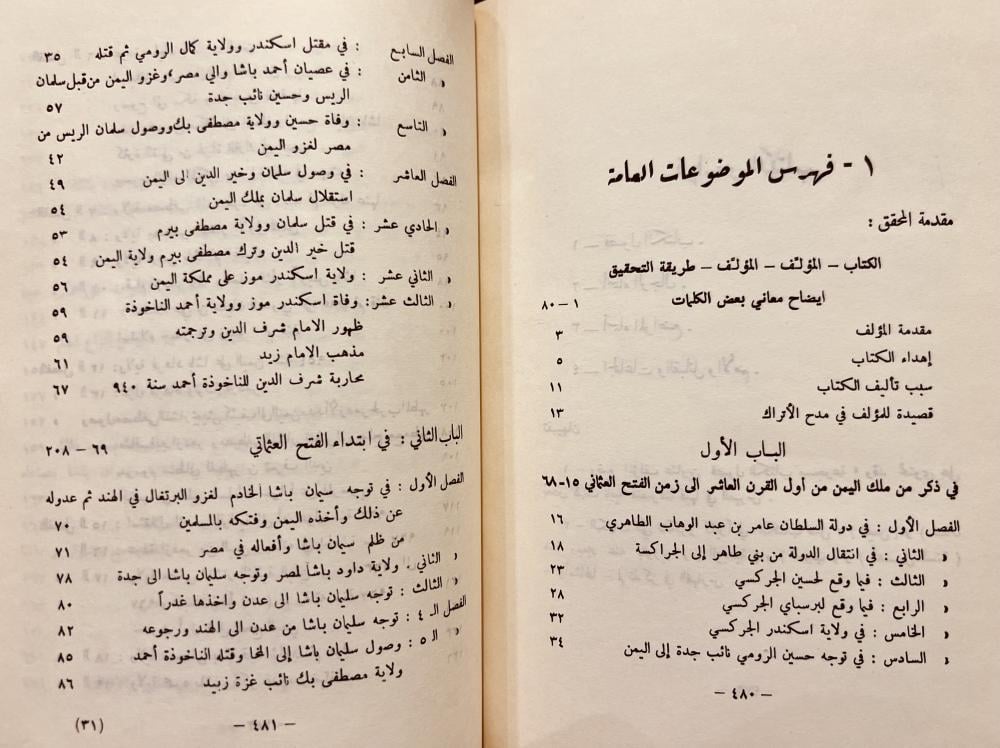 ١ - فهرس الموضوعات العامة
مقدمة المحقق :
الكتاب – المؤلَّف – المؤلِّف – طريقة التحقيق
ايضاح معاني بعض الكلمات ١-٨٠
مقدمة المؤلف ٣
إهداء الكتاب ٥
سبب تأليف الكتاب ١١
قصيدة للمؤلف في مدح الأتراك ١٣
الباب الأول
في ذكر من ملك اليمن من أول القرن العاشر الى زمن الفتح العثماني ١٥-٦٨
الفصل الأول : في دولة السلطان عامر بن عبد الوهاب الطاهري ١٦
« الثاني : في انتقال الدولة من بني طاهر إلى الجراكسة ١٨
« الثالث : فيما وقع لحسين الجركسي ٢٣
« الرابع : فيما وقع لبرسباي الجركسي ٢٨
« الخامس : في ولاية اسكندر الجركسي ٣٢
« السادس : في توجه حسين الرومي نائب جدة إلى اليمن ٣٤
– ٤٨٠ –
الفصل السابع : في مقتل اسكندر وولاية كمال الرومي ثم قتله ٣٥
« الثامن : في عصيان أحمد باشا والي مصر، وغزو اليمن من قبل سلمان
الريس وحسين نائب جدة ٥٧
« التاسع : وفاة حسين وولاية مصطفى بك ووصول سلمان الريس من
مصر لغزو اليمن ٤٢
الفصل العاشر : في وصول سلمان وخير الدين الى اليمن ٤٩
استقلال سلمان بملك اليمن ٥٤
« الحادي عشر : في قتل سلمان وولاية مصطفى بيرم ٥٣
قتل خير الدين وترك مصطفى بيرم ولاية اليمن ٥٤
« الثاني عشر : ولاية اسكندر موز على مملكة اليمن ٥٦
« الثالث عشر : وفاة اسكندر موز وولاية أحمد الناخوذة ٥٩
ظهور الامام شرف الدين وترجمته ٥٩
مذهب الامام زيد ٦١
محاربة شرف الدين للناخوذة أحمد سنة ٩٤٠ ٦٧
الباب الثاني : في ابتداء الفتح العثماني ٦٩ – ٢٠٨
الفصل الأول : في توجه سليمان باشا الخادم لغزو البرتغال في الهند ثم عدوله
عن ذلك وأخذه اليمن وفتكه بالمسلمين ٧٠
من ظلم سليمان باشا وأفعاله في مصر ٧١
« الثاني . ولاية داود باشا لمصر وتوجه سليمان باشا الى جدة ٧٨
« الثالث : توجه سليمان باشا الى عدن واخذها غدراً ٨٠
الفصل الـ ٤ : توجه سليمان باشا من عدن الى الهند ورجوعه ٨٢
« الـ ٥ : وصول سليمان باشا إلى المخا وقتله الناخوذة أحمد ٨٥
ولاية مصطفى بك نائب غزة زبيد ٨٦
– ٤٨١ –
(٣١)